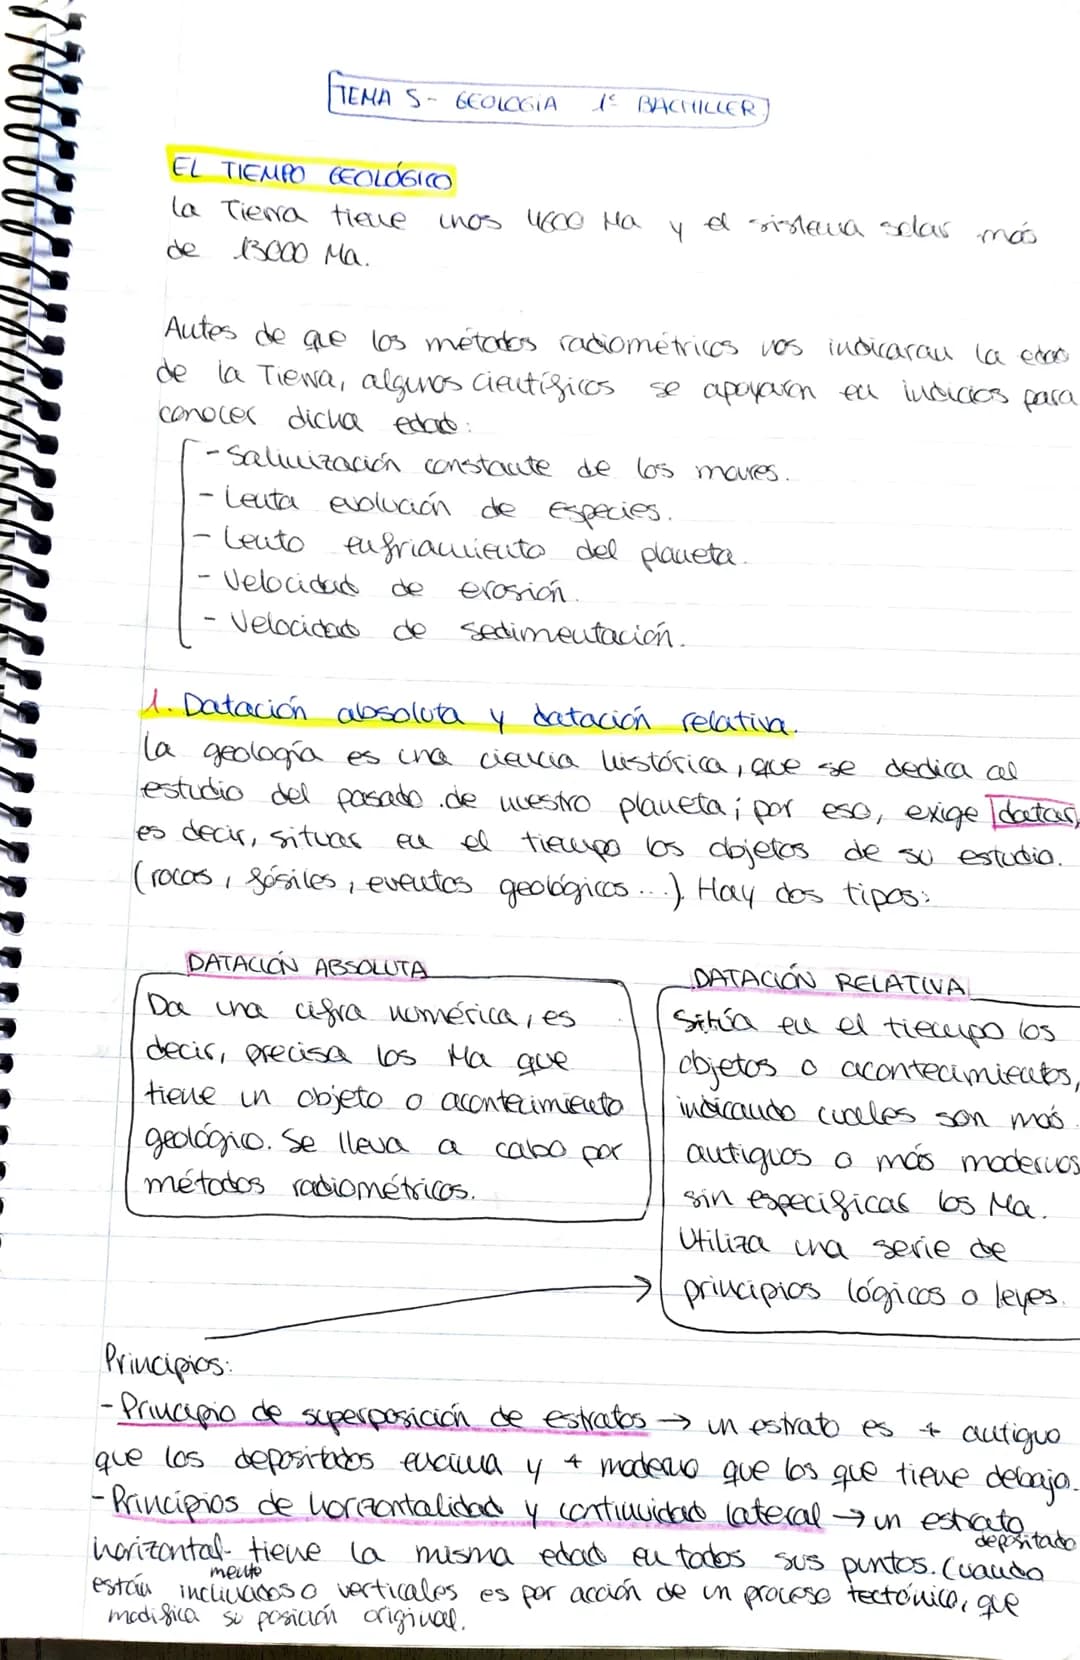 TEMA 5 - GEOLOGÍA 1º BACHILLER
EL TIEMPO GEOLÓGICO
La Tierra tiene unos 4600 Ma y el sistema solar más
de 13000 Ma.
Antes de que los métodos radiométricos nos indicaran la edad
de la Tierra, algunos científicos se apoyaron en indicios para
conocer dicha edad:
- Salinización constante de los mares.
- Lenta evolución de especies.
- Lento enfriamiento del planeta.
- Velocidad de erosión.
- Velocidad de sedimentación.
1. Datación absoluta y datación relativa.
La geología es una ciencia histórica, que se dedica al
estudio del pasado de nuestro planeta; por eso, exige datar,
es decir, situar en el tiempo los objetos de su estudio.
(rocas, fósiles, eventos geológicos...). Hay dos tipos:
DATACIÓN ABSOLUTA
Da una cifra numérica, es
decir, precisa los Ma que
tiene un objeto o acontecimiento
geológico. Se lleva a cabo por
métodos radiométricos.
DATACIÓN RELATIVA
Sitúa en el tiempo los
objetos o acontecimientos,
indicando cuales son más
antiguos o más modernos
sin especificar los Ma.
Utiliza una serie de
principios lógicos o leyes.
Principios:
- Principio de superposición de estratos → un estrato es + antiguo
que los depositados encima y + moderno que los que tiene debajo.
- Principios de horizontalidad y continuidad lateral → un estrato depositado
horizontalmente tiene la misma edad en todos sus puntos. (Cuando
están inclinados o verticales es por acción de un proceso tectónico, que
modifica su posición original.